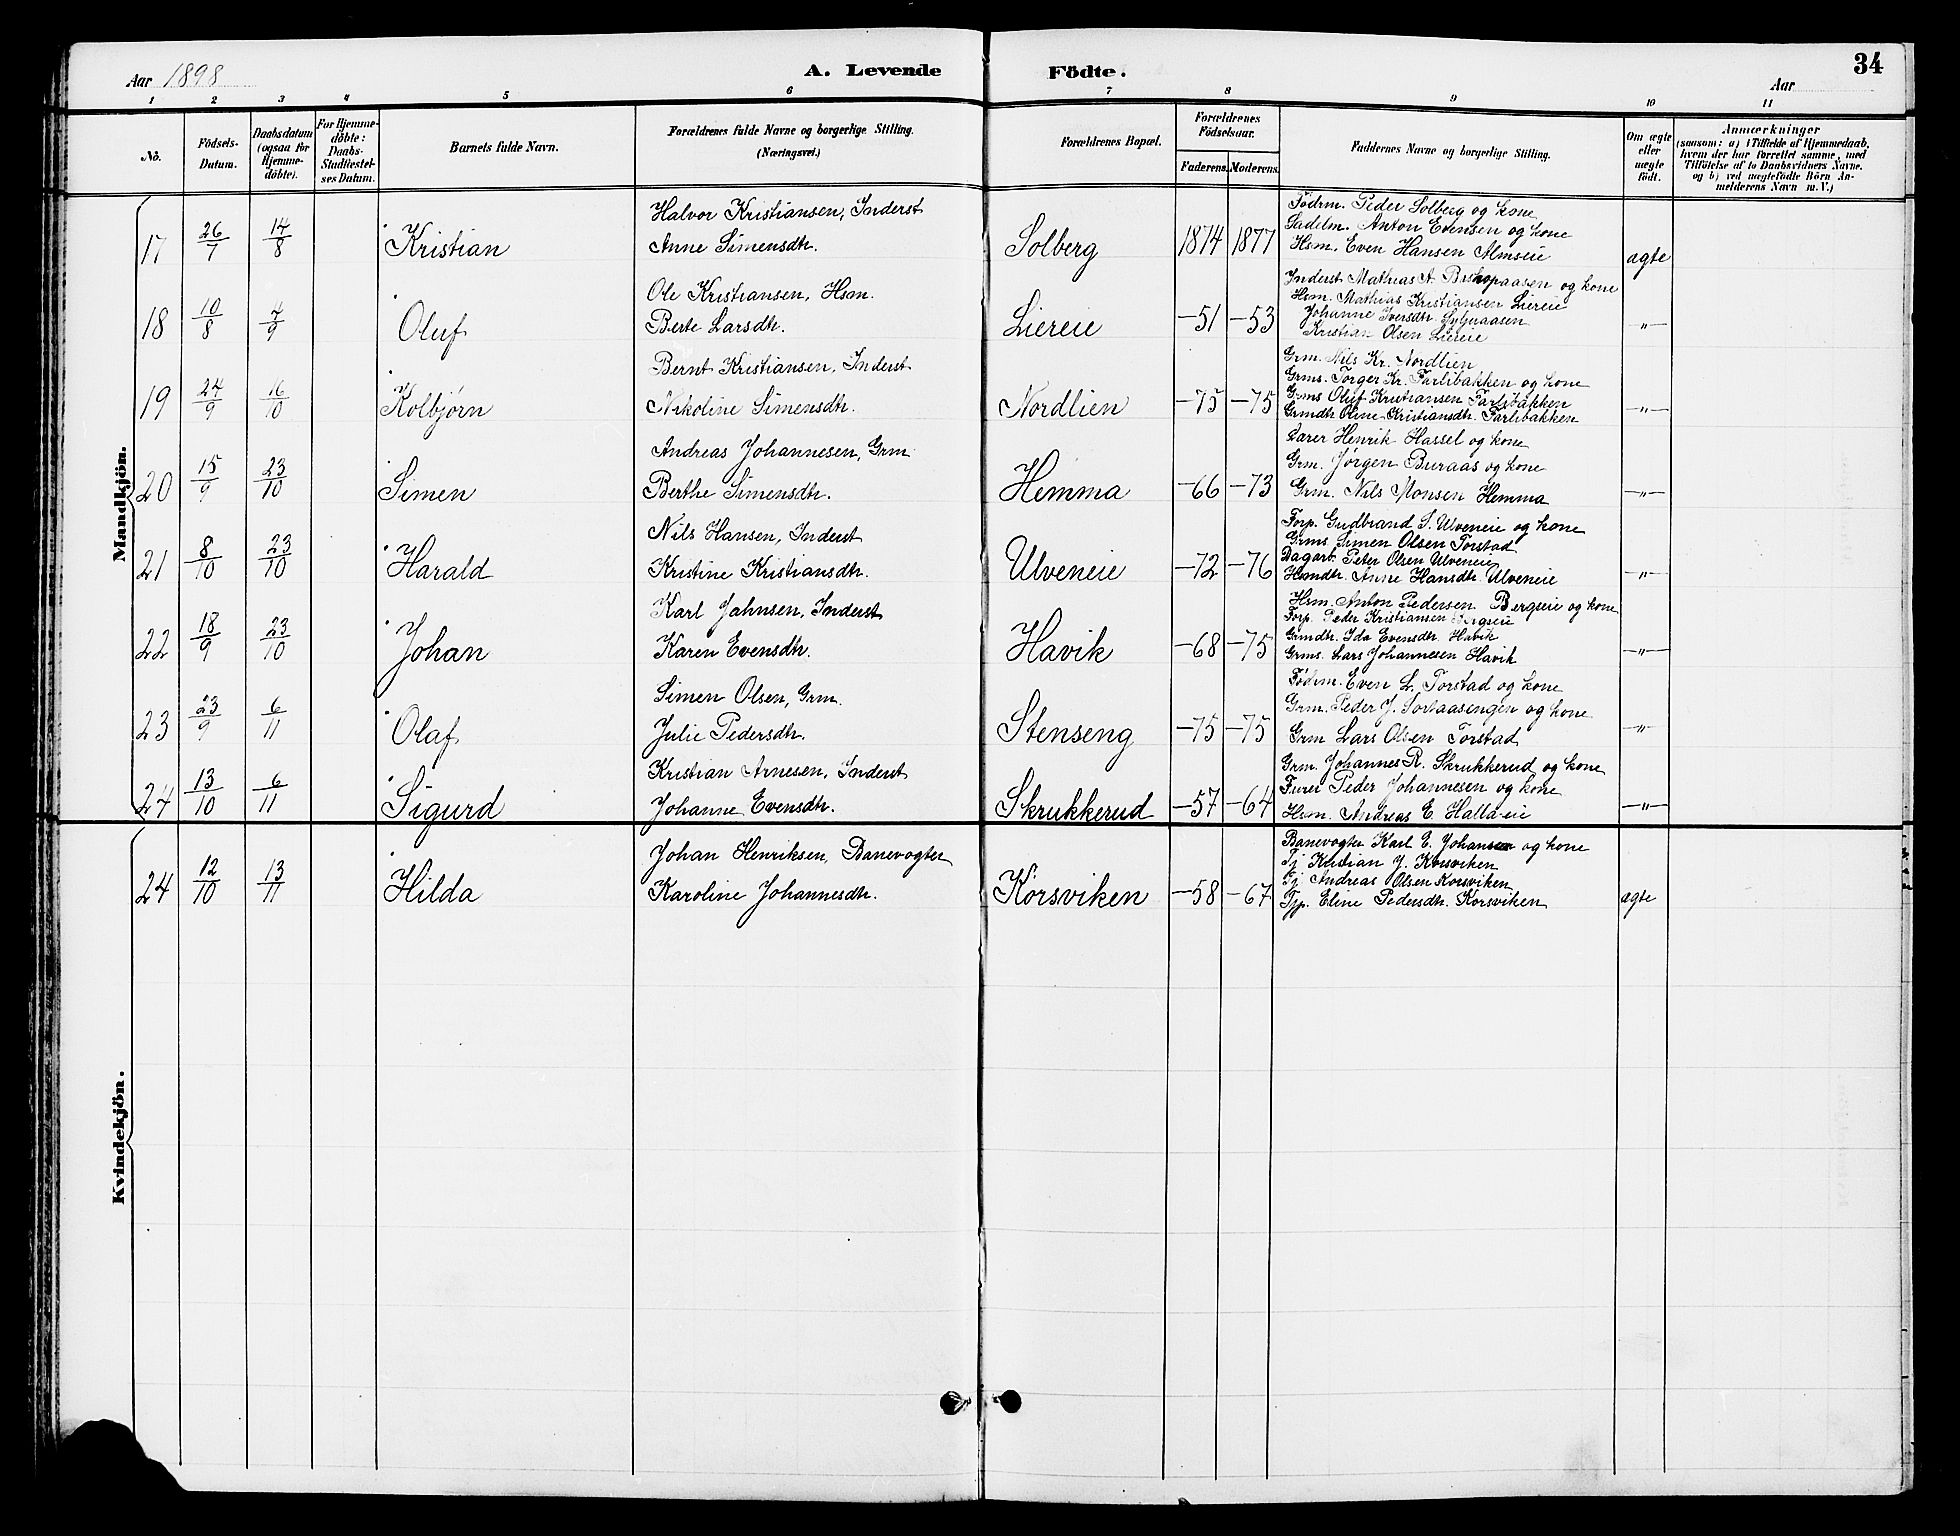 Aar 1898 A. Levende Födte. Aar 34
1 2 3 4 5 6 7 8 9 10 11
No.
Födsels-
Datum.
Daabsdatum
(ogsaa for
Hjemme-
döbte).
For Hjemme-
döbte:
Daabs-
Stadfestel-
ses Datum.
Barnets fulde Navn.
Forældrenes fulde Navne og borgerlige Stilling.
(Næringsvei.)
Forældrenes Bopæl.
Forældrenes
Födselsaar.
Faderens. Moderens.
Faddernes Navne og borgerlige Stilling.
Om ægte
eller
uægte
født.
Anmærkninger
(saasom: a) i Tilfælde af Hjemmedaab,
hvem der har forrettet samme, med
Tilföielse af to Daabsvidners Navne.
og b) ved uægtefödte Börn An-
melderens Navn m. V.)
Mandkjön.
17 26/7 14/8 Kristian
Halvor Kristiansen, Inderst
Anne Simensdtr.
Solberg 1874 1877
Födrm. Peder Solberg og kone
Sadelm. Anton Evensen og kone
Hsm. Even Hansen Almseie
ægte
18 10/8 4/9 Oluf
Ole Kristiansen, Hsm.
Berte Larsdtr.
Liereie -51 -53
Inderst Mathias A. Bishopaasen og kone
Hsm. Mathias Kristiansen Liereie
Johanne Iversdtr.
Kristian Olsen Liereie
-"-
19 24/9 16/10 Kolbjørn
Bernt Kristiansen, Inderst
Nikoline Simensdtr.
Nordlien -75 -75
Grm. Nils Kr. Nordlien
Grms. Torger Kr. Farlibakken og kone
Grms Oluf Kristiansen Farlibakken
Grmdtr Oline Kristiansdtr. Farlibakken
-"-
20 15/9 23/10 Simen
Andreas Johannesen, Grm.
Berthe Simensdtr.
Hemma -66 -73
Farer Henrik Hassel og kone
Grm. Jørgen Buraas og kone
Grm. Nils Monsen Hemma
-"-
21 8/10 23/10 Harald
Nils Hansen, Inderst
Kristine Kristiansdtr.
Ulveneie -72 -76
Forp. Gudbrand S. Ulveneie og kone
Grms Simen Olsen Torstad
Dagarb. Peter Olsen Ulveneie
Hsmdtr. Anne Hansdtr. Ulveneie
-"-
22 18/9 23/10 Johan
Karl Jahnsen, Inderst
Karen Evensdtr.
Havik -68 -75
Hsm. Anton Pedersen Bergeie og kone
Forp. Peder Kristiansen Bergeie
Grmdtr. Ida Evensdtr. Havik
Grms. Lars Johannesen Havik
-"-
23 23/9 6/11 Olaf
Simen Olsen, Grm.
Julie Pedersdtr.
Stenseng -75 -75
Födrm. Even L. Torstad og kone
Grm. Peder J. Sortaasengen og kone
Grm Lars Olsen Torstad
-"-
24 13/10 6/11 Sigurd
Kristian Arnesen, Inderst
Johanne Evensdtr.
Skrukkerud -57 -64
Grm. Johannes R. Skrukkerud og kone
Furer Peder Johannesen og kone
Hsm. Andreas E. Halla-eie
-"-
Kvindekjön.
24 12/10 13/11 Hilda
Johan Henriksen, Banevogter
Karoline Johannesdtr.
Korsviken -58 -67
Banevogter Karl E. Johansen og kone
Tj Kristian J. Korsviken
Tj Andreas Olsen Korsviken
Tjp. Eline Pedersdtr. Korsviken
ægte